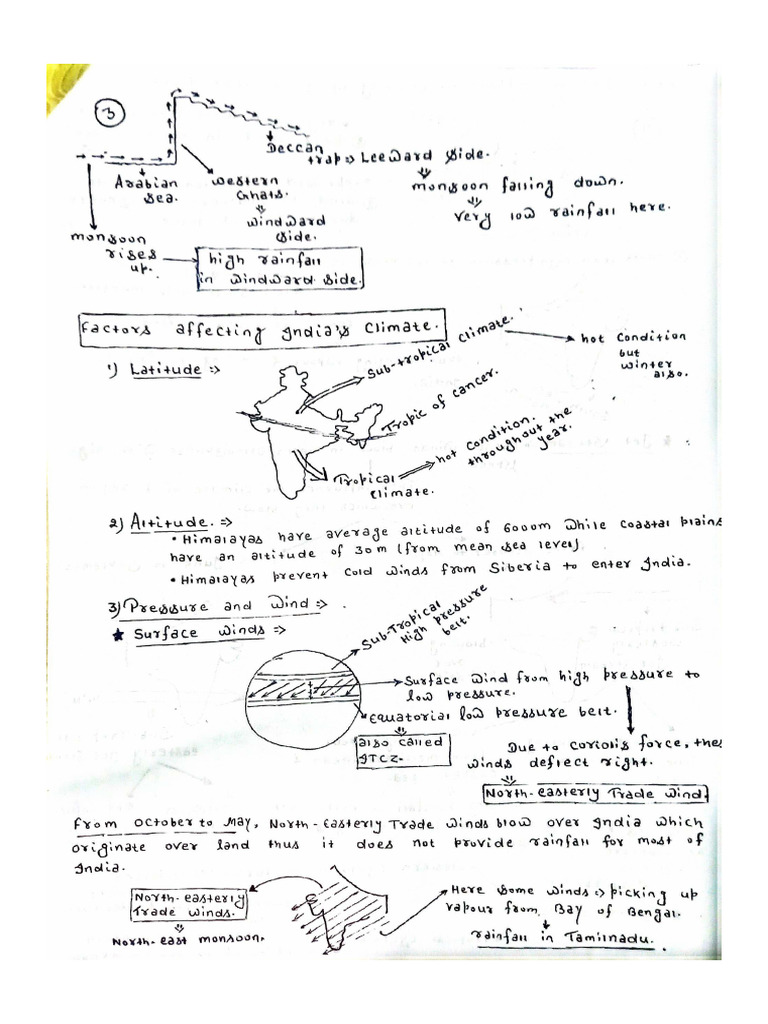 3
Deccan
trap => Leeward side.
Arabian
sea.
western
Ghats.
monsoon falling down.
very low rainfall here.
windward
side.
monsoon
rises
up.
high rainfall
in windward side.
Factors affecting India's Climate.
1) Latitude :->
Sub-tropical climate.
hot Condition
but
winter
also.
Tropic of cancer.
hot condition.
throughout the
year.
Tropical
climate.
2) Altitude. :->
• Himalayas have average altitude of 6000m while coastal plains
have an altitude of 30m (from mean sea level).
• Himalayas prevent cold winds from Siberia to enter India.
3) Pressure and wind :->
★ Surface winds :->
Sub-Tropical
High pressure
belt.
Surface wind from high pressure to
low pressure.
Equatorial low pressure belt.
also called
ITCZ.
Due to coriolis force, these
winds deflect right.
North-easterly Trade wind.
From October to May, North-Easterly Trade winds blow over India which
originate over land thus it does not provide rainfall for most of
India.
North-easterly
Trade winds.
North-east monsoon.
Here some winds :-> picking up
vapour from Bay of Bengal.
rainfall in Tamilnadu.